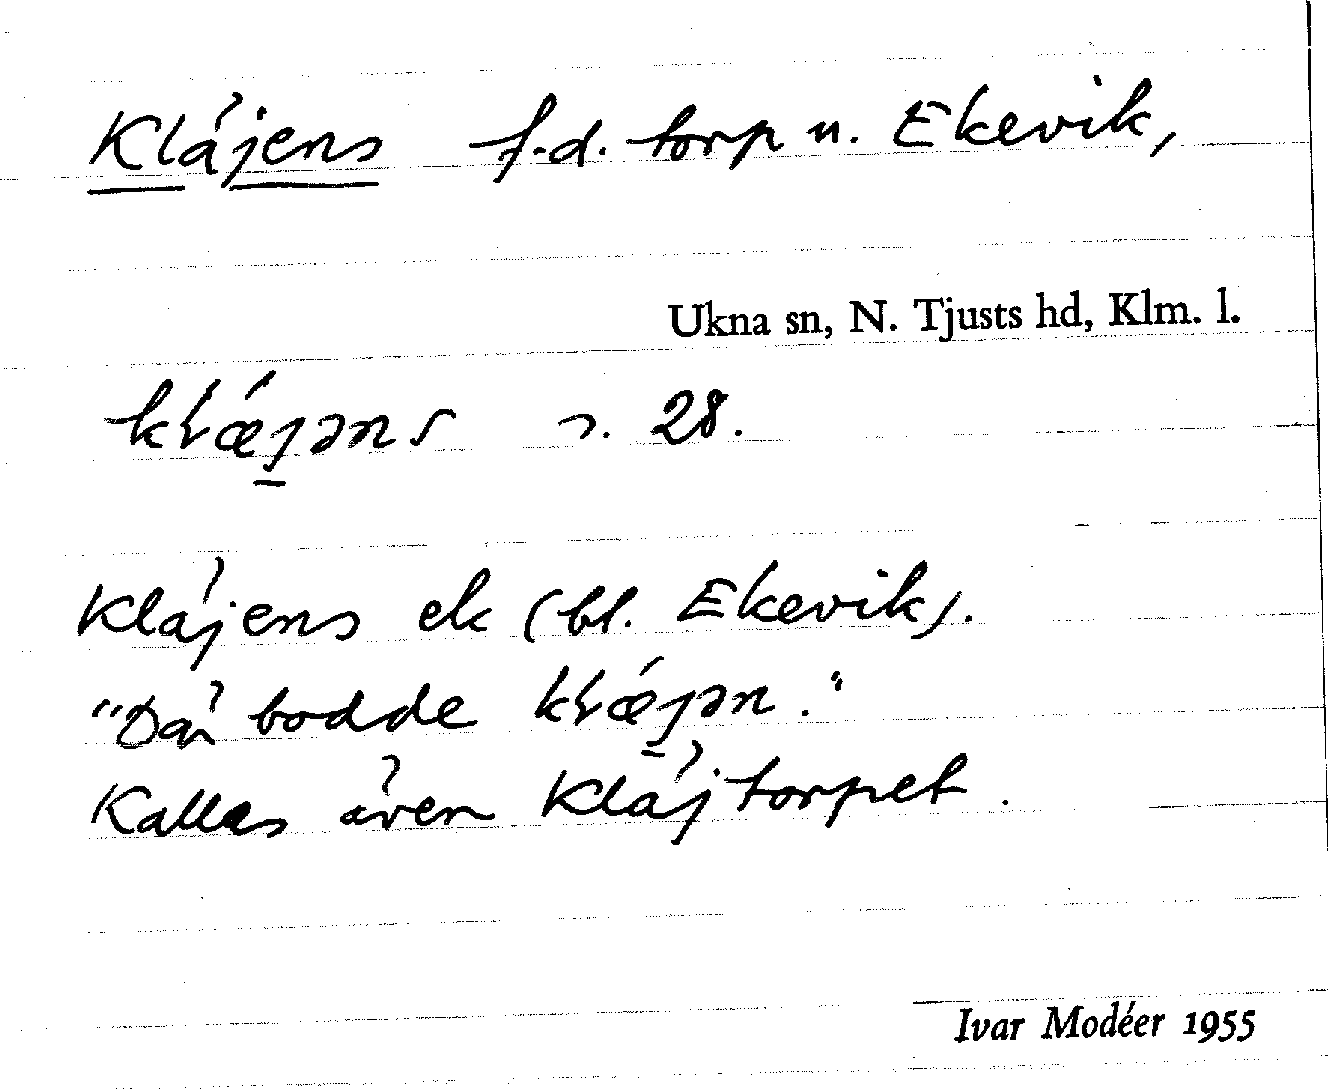 Kläjens f.d. torp u. Ekevik,
Ukna sn, N. Tjusts hd, Klm. l.
s. 28.
Kläjens ek (bl. Ekevik).
"Där bodde
Kallas även Kläjtorpet.
Ivar Modéer 1955